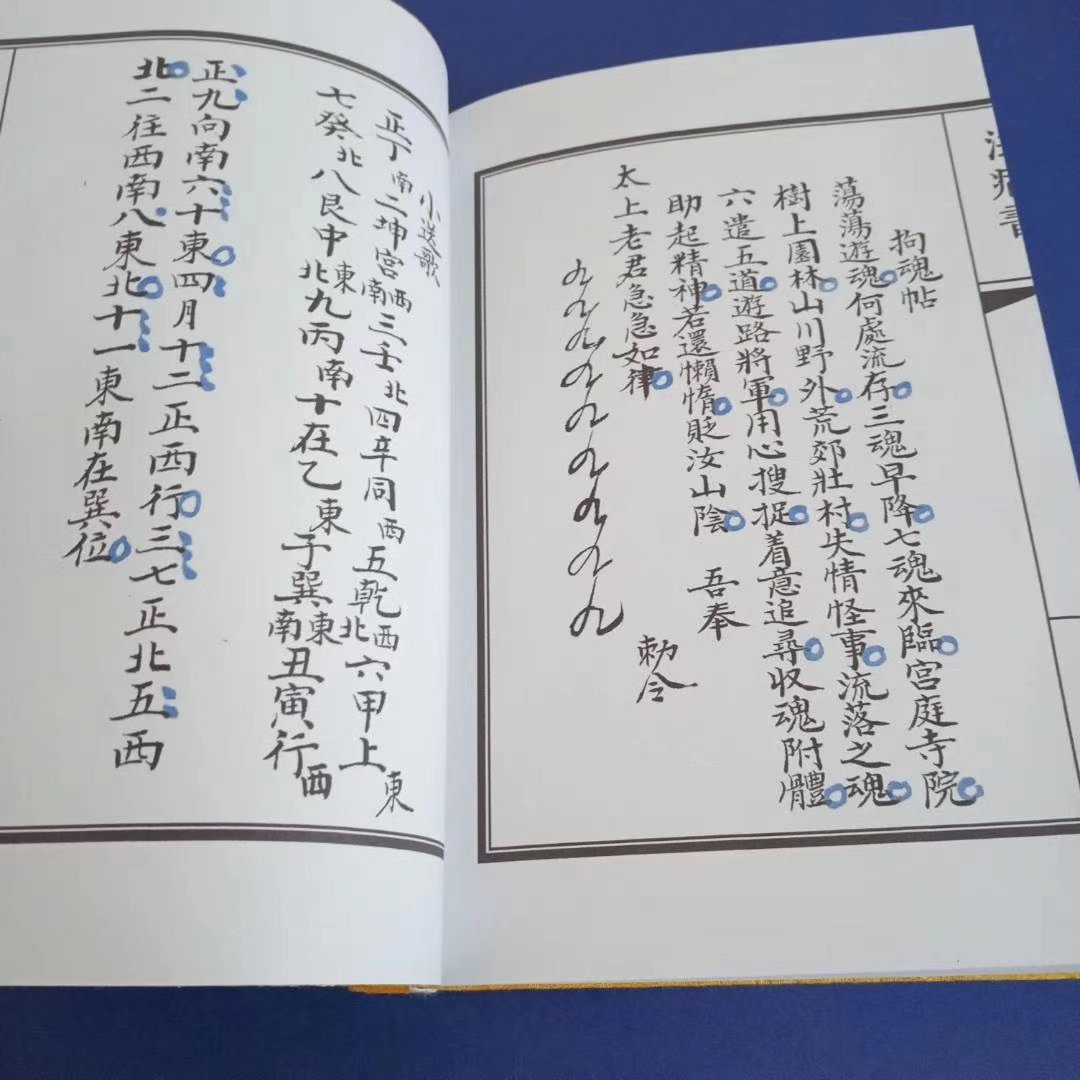 拘魂帖
蕩蕩遊魂何處流存三魂早降七魂來臨宮庭寺院
樹上園林山川野外荒郊壯村失情怪事流落之魂
六遣五道遊路將軍用心搜捉着意追尋収魂附體
助起精神若還懶惰貶汝山陰 吾奉
太上老君急急如律 勅令
九九九九九九九九
小送歌
正丁南二坤宮西南三壬北四辛同西五乾西北六甲上東
七癸北八艮中東北九丙南十在乙東子巽東南丑寅行西
正九向南六十東四月十二正西行三七正北五西
北二往西南八東北十一東南在巽位